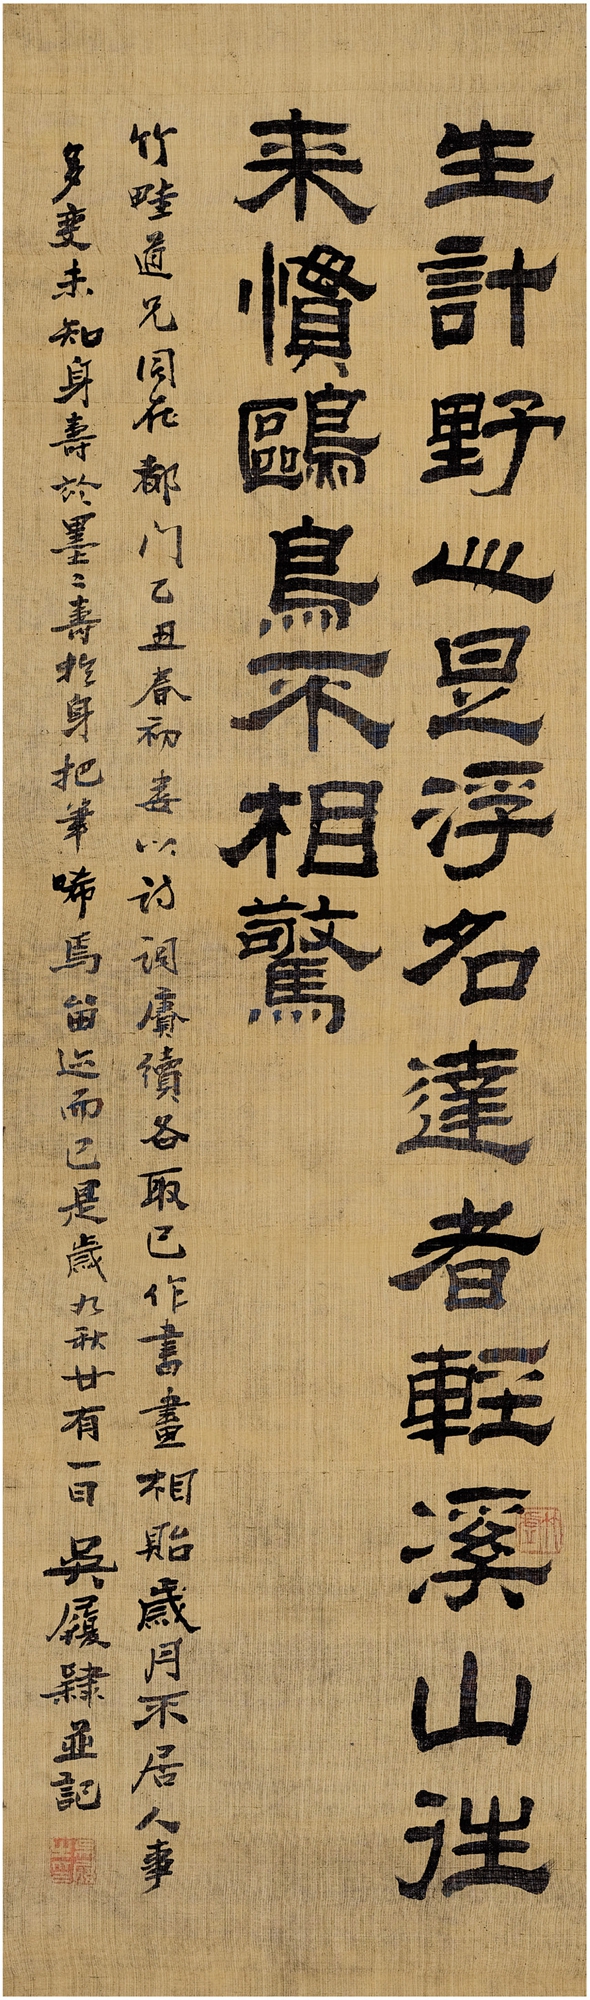 生計野心是浮名達者輕溪山往
来慣鷗鳥不相驚
竹畦道兄同在都门乙丑春初婁以詩詞賡續各取已作書畫相貽歲月不居人事
多變未知身壽於墨〻壽於身把筆唏焉留迹而已是歲九秋廿有一日吳履隸並記